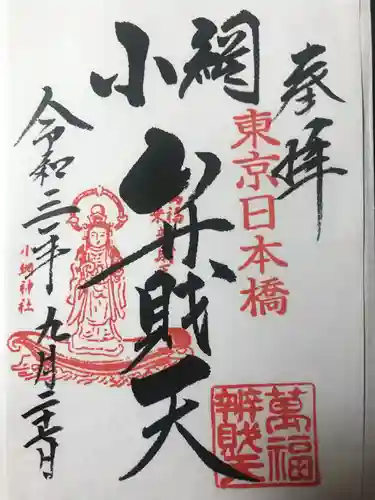 奉拝
東京日本橋
小網
弁財天
小網神社
令和三年九月二十七日
萬福
辨財天